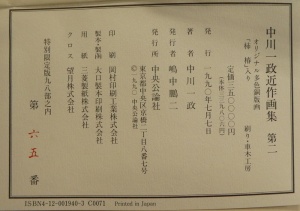 中川一政近作画集 第二
オリジナル多色銅版画
「椿」入り 刷り・串木工房
定価二五〇〇〇〇円
発行 一九九〇年七月七日
著者 中川一政
発行者 嶋中鵬二
発行所 中央公論社
東京都中央区京橋二丁目八番七号
©一九九〇 中央公論社
印刷 岡村印刷工業株式会社
製本製函 大口製本印刷株式会社
用紙 三菱製紙株式会社
クロス 望月株式会社
特別限定版九八部之内
第 六五 番
ISBN4-12-001940-3 C0071 Printed in Japan